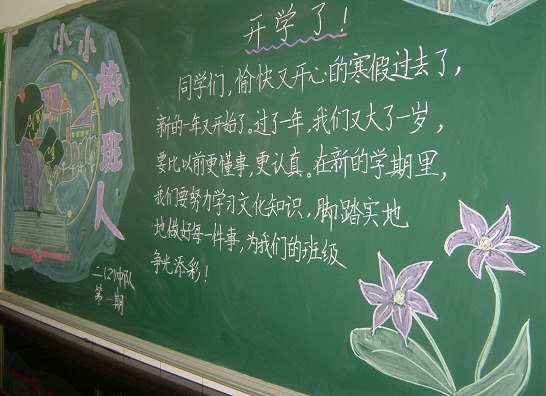 开学了！
同学们，愉快又开心的寒假过去了，
新的一年又开始了。过了一年，我们又大了一岁，
要比以前更懂事，更认真。在新的学期里，
我们要努力学习文化知识，脚踏实地
地做好每一件事，为我们的班级
争光添彩！
小小接班人
二(2)中队
第一期